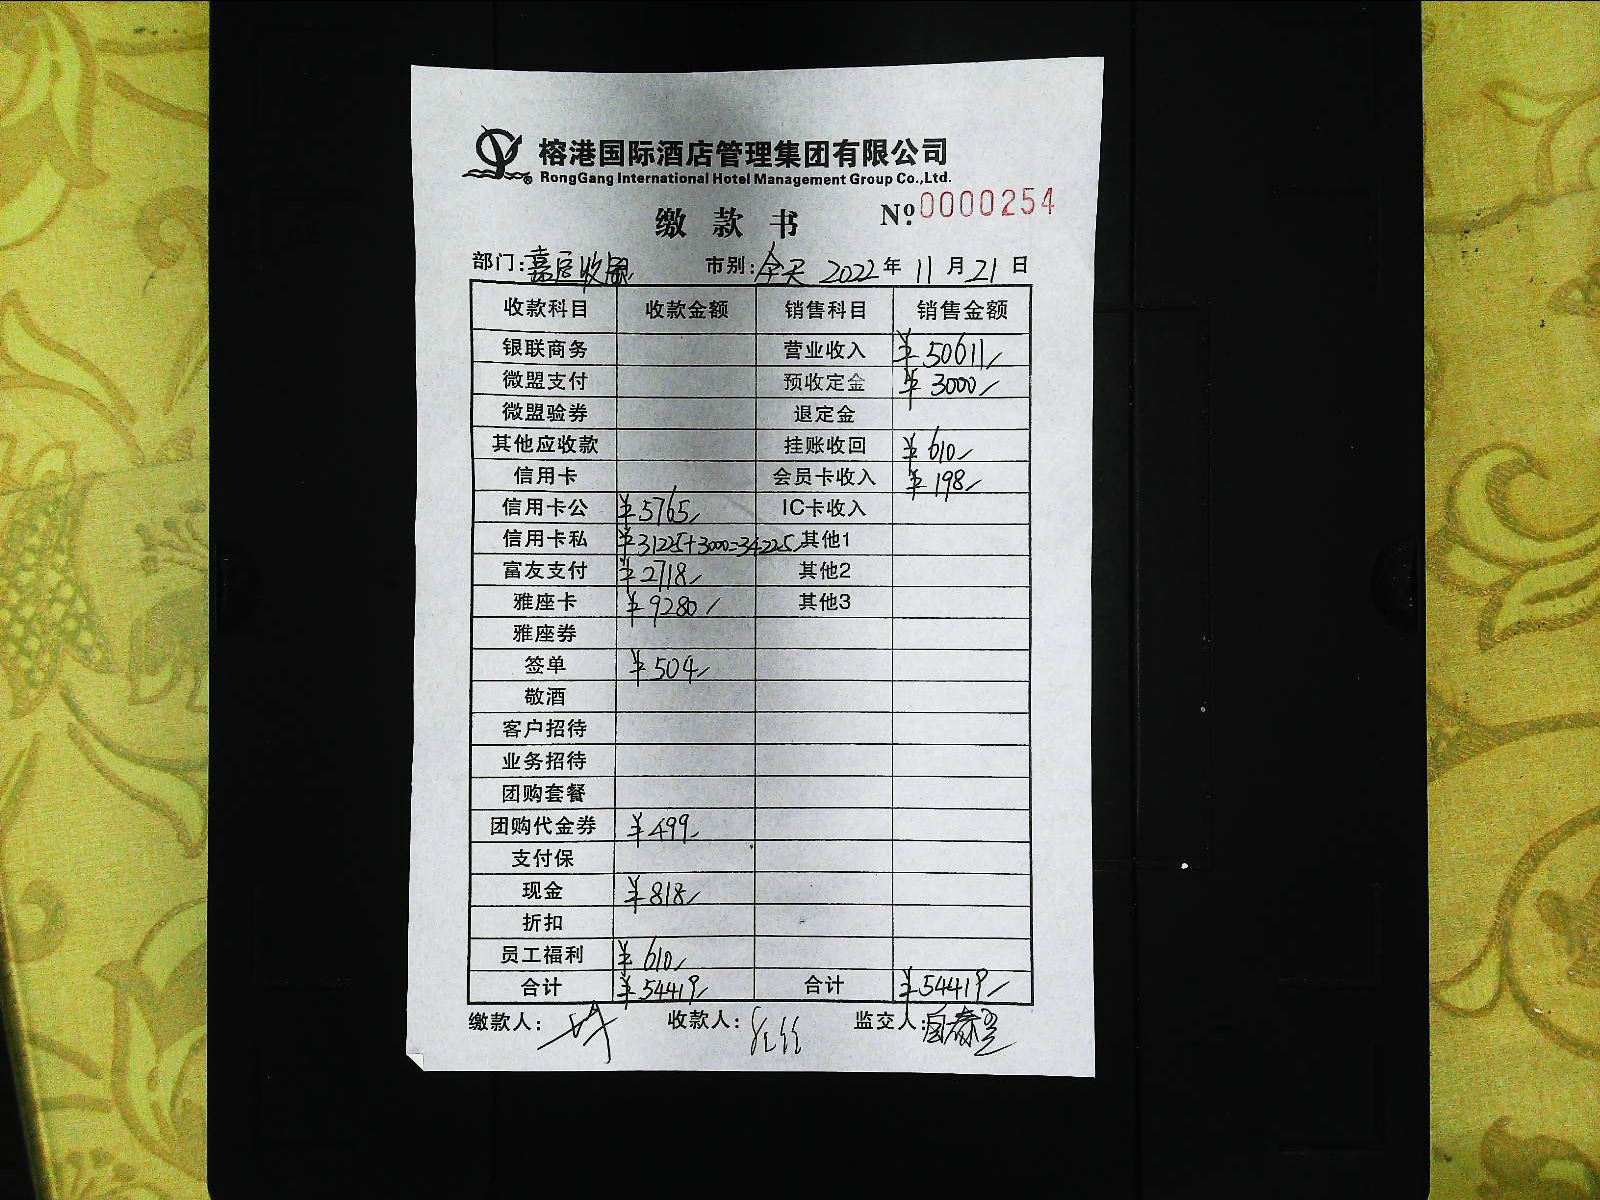 榕港国际酒店管理集团有限公司
RongGang International Hotel Management Group Co.,Ltd.
缴款书 Nº:0000254
部门:嘉宾收银 市别:全天 2022年11月21日
收款科目 收款金额 销售科目 销售金额
银联商务 营业收入 ¥50611
微盟支付 预收定金 ¥3000
微盟验券 退定金
其他应收款 挂账收回 ¥610
信用卡 会员卡收入 ¥198
信用卡公 ¥5765 IC卡收入
信用卡私 ¥31225+3000=34225 其他1
富友支付 ¥2718 其他2
雅座卡 ¥9280 其他3
雅座券
签单 ¥504
敬酒
客户招待
业务招待
团购套餐
团购代金券 ¥499
支付保
现金 ¥818
折扣
员工福利 ¥610
合计 ¥54419 合计 ¥54419
缴款人: 收款人: 监交人: